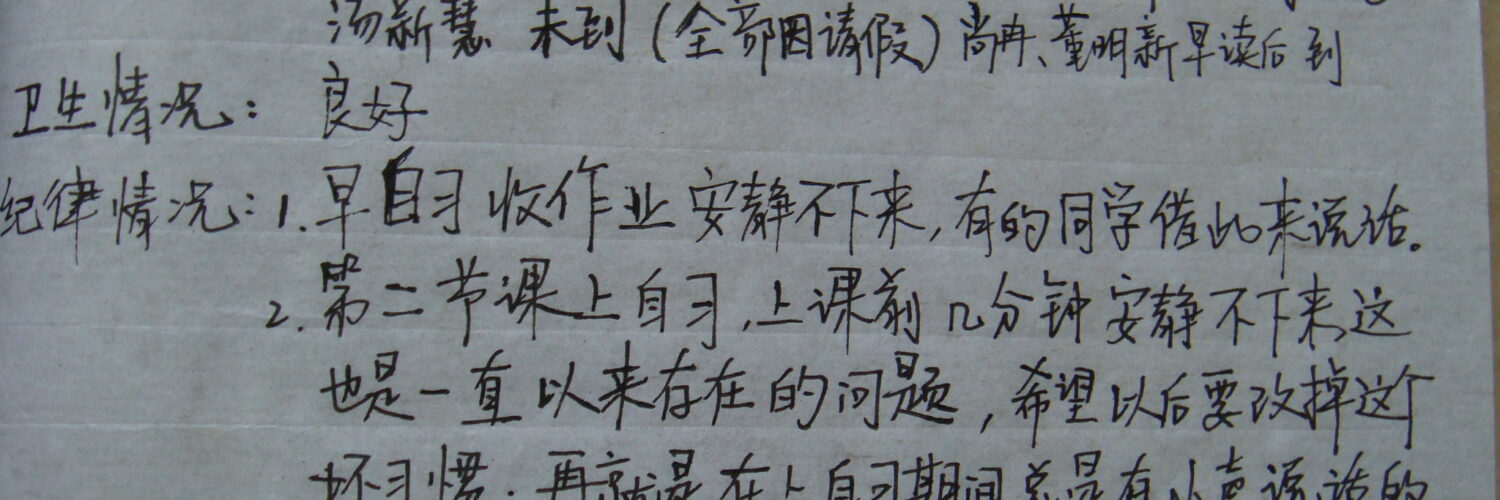 汤新慧 未到（全部因请假）尚冉、董明新早读后到
卫生情况： 良好
纪律情况：1.早自习收作业安静不下来,有的同学借此来说话。
2.第二节课上自习,上课前几分钟安静不下来,这
也是一直以来存在的问题,希望以后要改掉这个
坏习惯.再就是在上自习期间总是有小声说话的